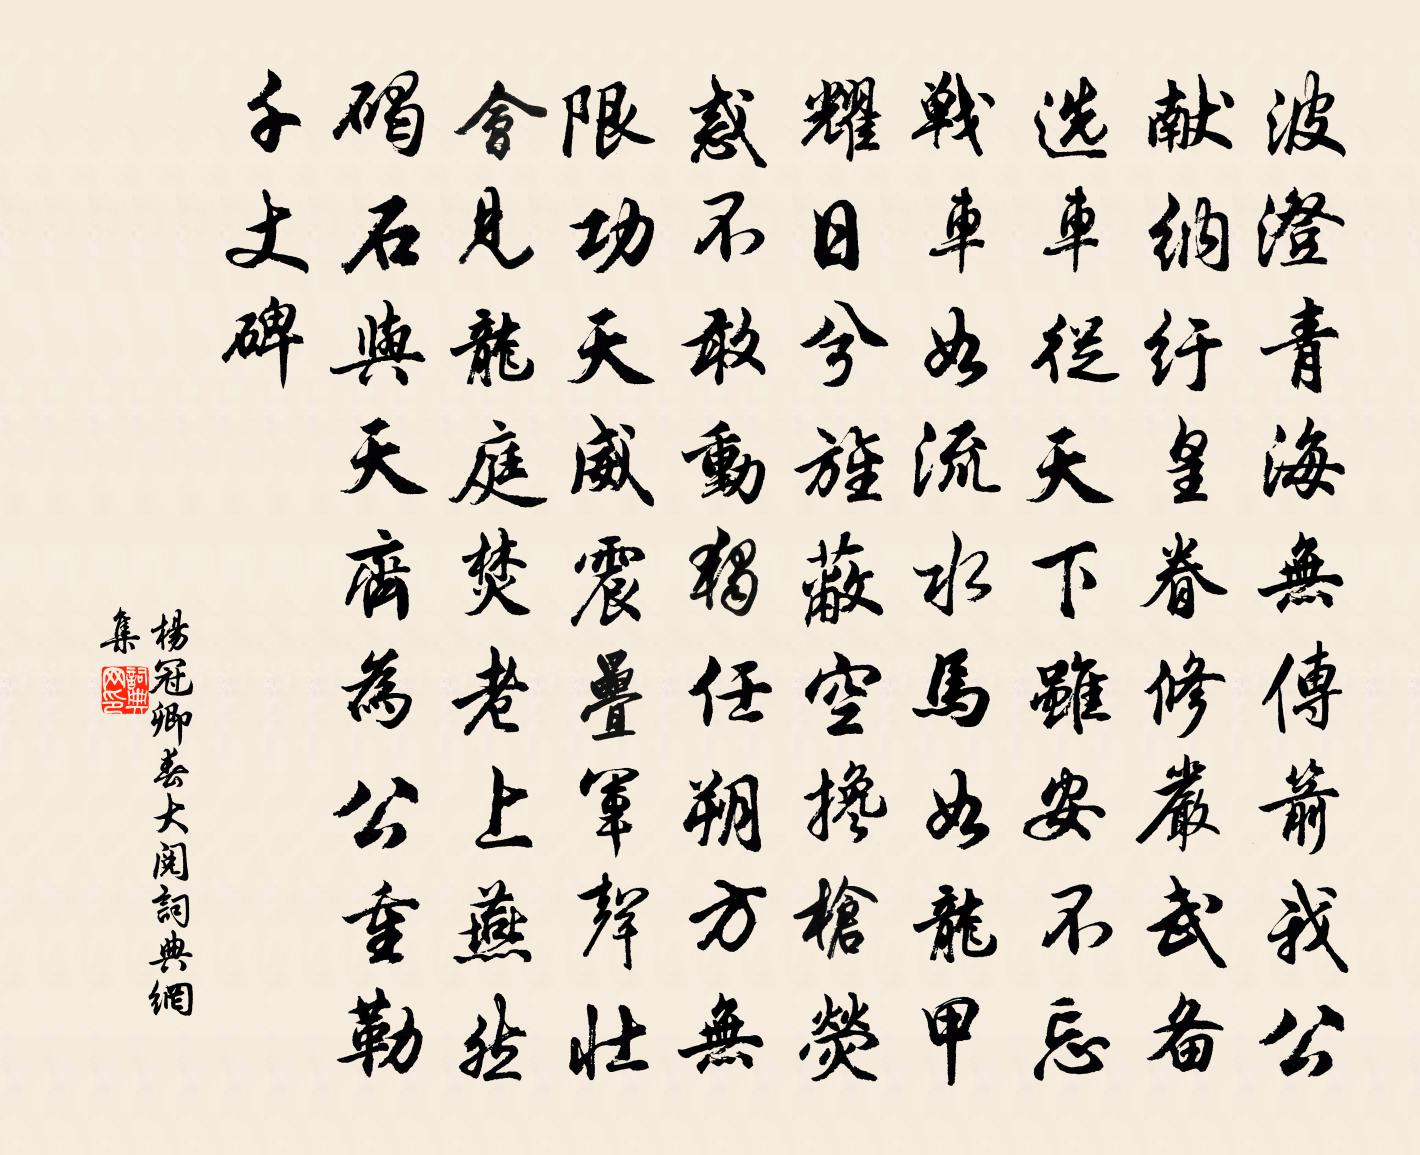 波澄青海無傳箭我公
献納紆皇眷修嚴武备
选車從天下雖安不忘
戦車如流水馬如龍甲
耀日兮旌蔽空攙槍熒
惑不敢動獨任朔方無
限功天威震疊軍聲壯
會見龍庭焚老上燕然
碣石與天齊為公重勒
千丈碑
楊冠卿春大閱詞典網
集
詞典
网印